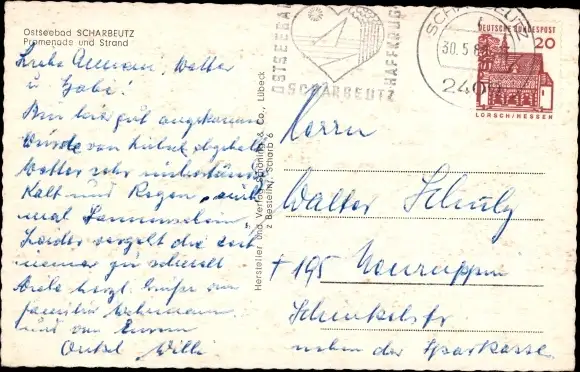 Ostseebad SCHARBEUTZ
Promenade und Strand
Liebe Annem, Walter
u Gabi.
Bin hier gut angekommen
wurde von Lübeck abgeholt
Wetter sehr unbeständig
Kalt und Regen, auch
mal Sonnenschein,
Leider vergeht die Zeit
immer zu schnell
Viele herzl. Grüße von
Familie
und von Eurem
Onkel Willi
Hersteller und Verlag Schöning & Co., Lübeck
Bestellnr. Scharb 6
OSTSEEBAD
SCHARBEUTZ
HAFFKRUG
SCHARBEUTZ
30.5.
240
DEUTSCHE BUNDESPOST
20
LORSCH/HESSEN
Herrn
Walter Schulz
+ 195 Neuruppin
Schinkelstr
neben der Sparkasse